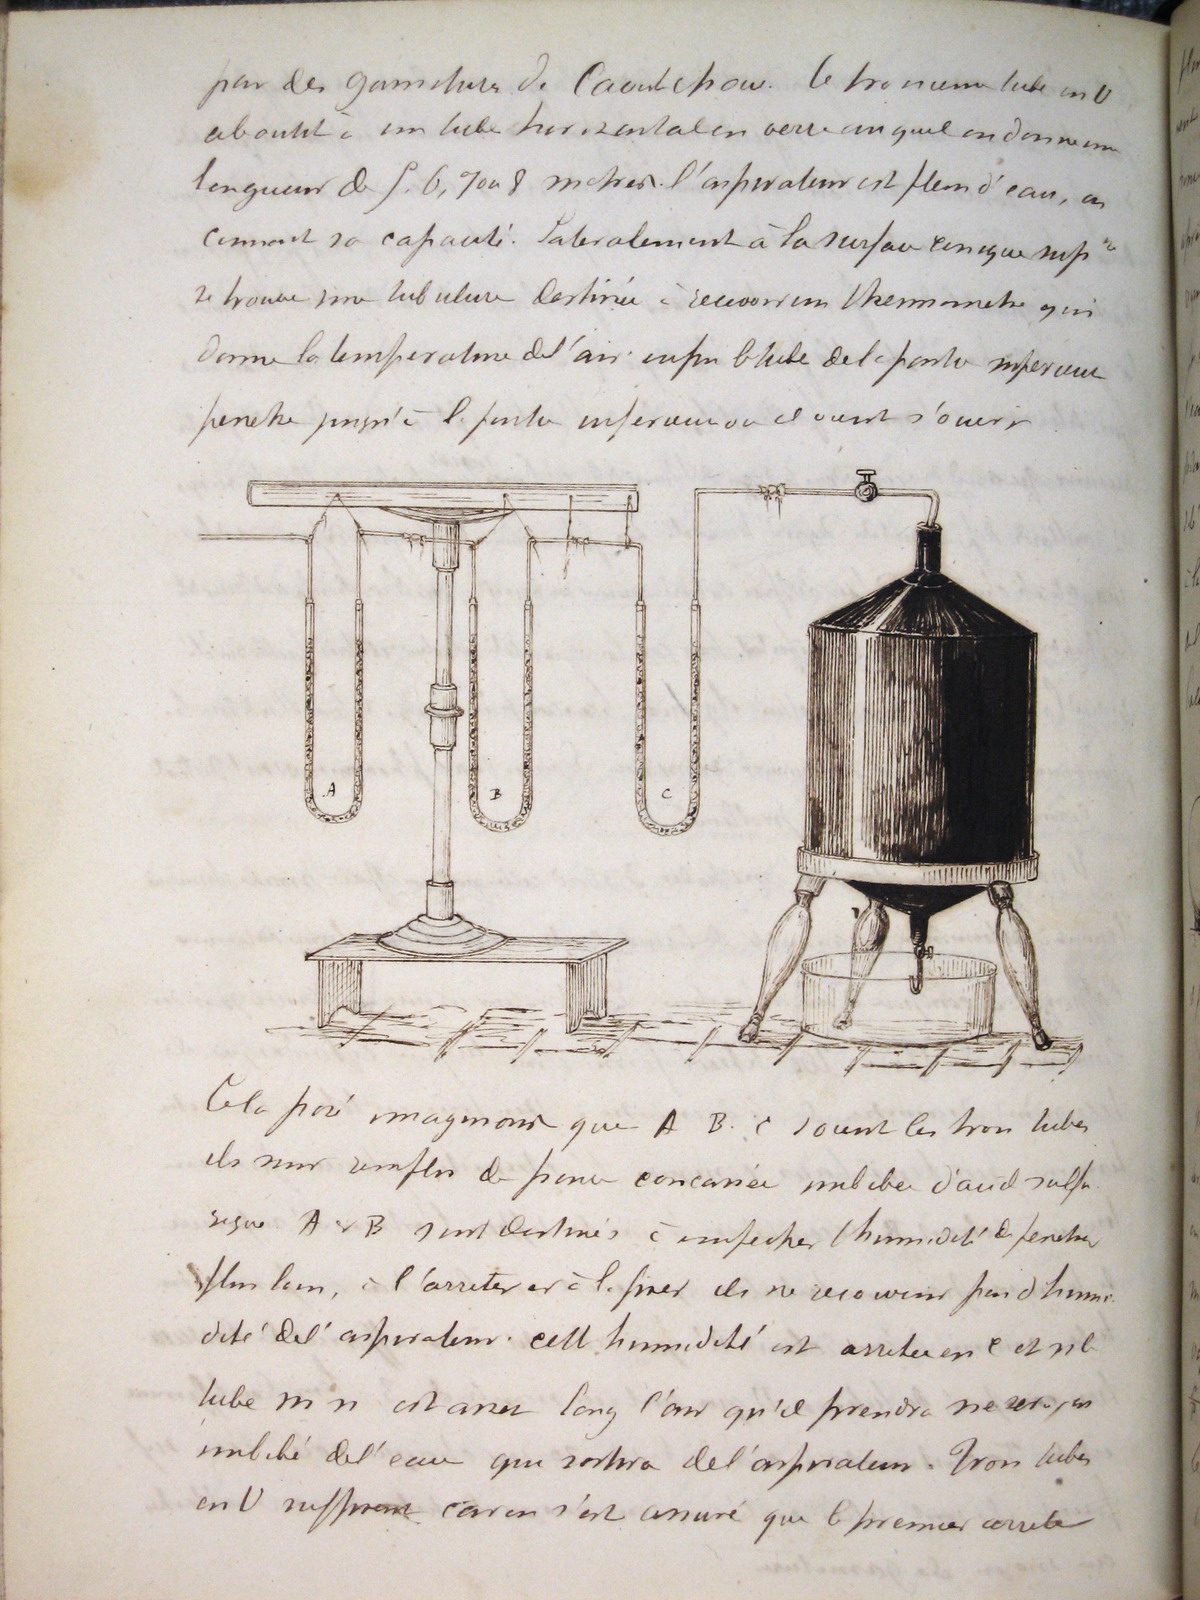 par des garnitures de Caoutchouc. le troisieme tube en U
aboutit à un tube horizontal en verre auquel on donne une
longueur de 5. 6, 7 ou 8 metres. l'aspirateur est plein d'eau, on
connait sa capacité. Lateralement à la surface conique supre
se trouve une tubulure destinée à recevoir un thermometre qui
donne la temperature de l'air. enfin le tube de la partie superieure
penetre jusqu'à la partie inferieure ou il vient s'ouvrir
A
B
C
Cela posé imaginons que A B. C soient les trois tubes
ils sont remplis de ponce concassée imbibée d'acid sulfu
rique. A & B sont destinés à empecher l'humidité de penetrer
plus loin, à l'arreter et à la fixer ils ne recoivent pas d'humi
dité de l'aspirateur. cette humidité est arretée en C et si le
tube m n est assez long l'air qu'il prendra ne sera pas
imbibé de l'eau qui sortira de l'aspirateur. Trois tubes
en U suffisent car on s'est assuré que le premier arrete